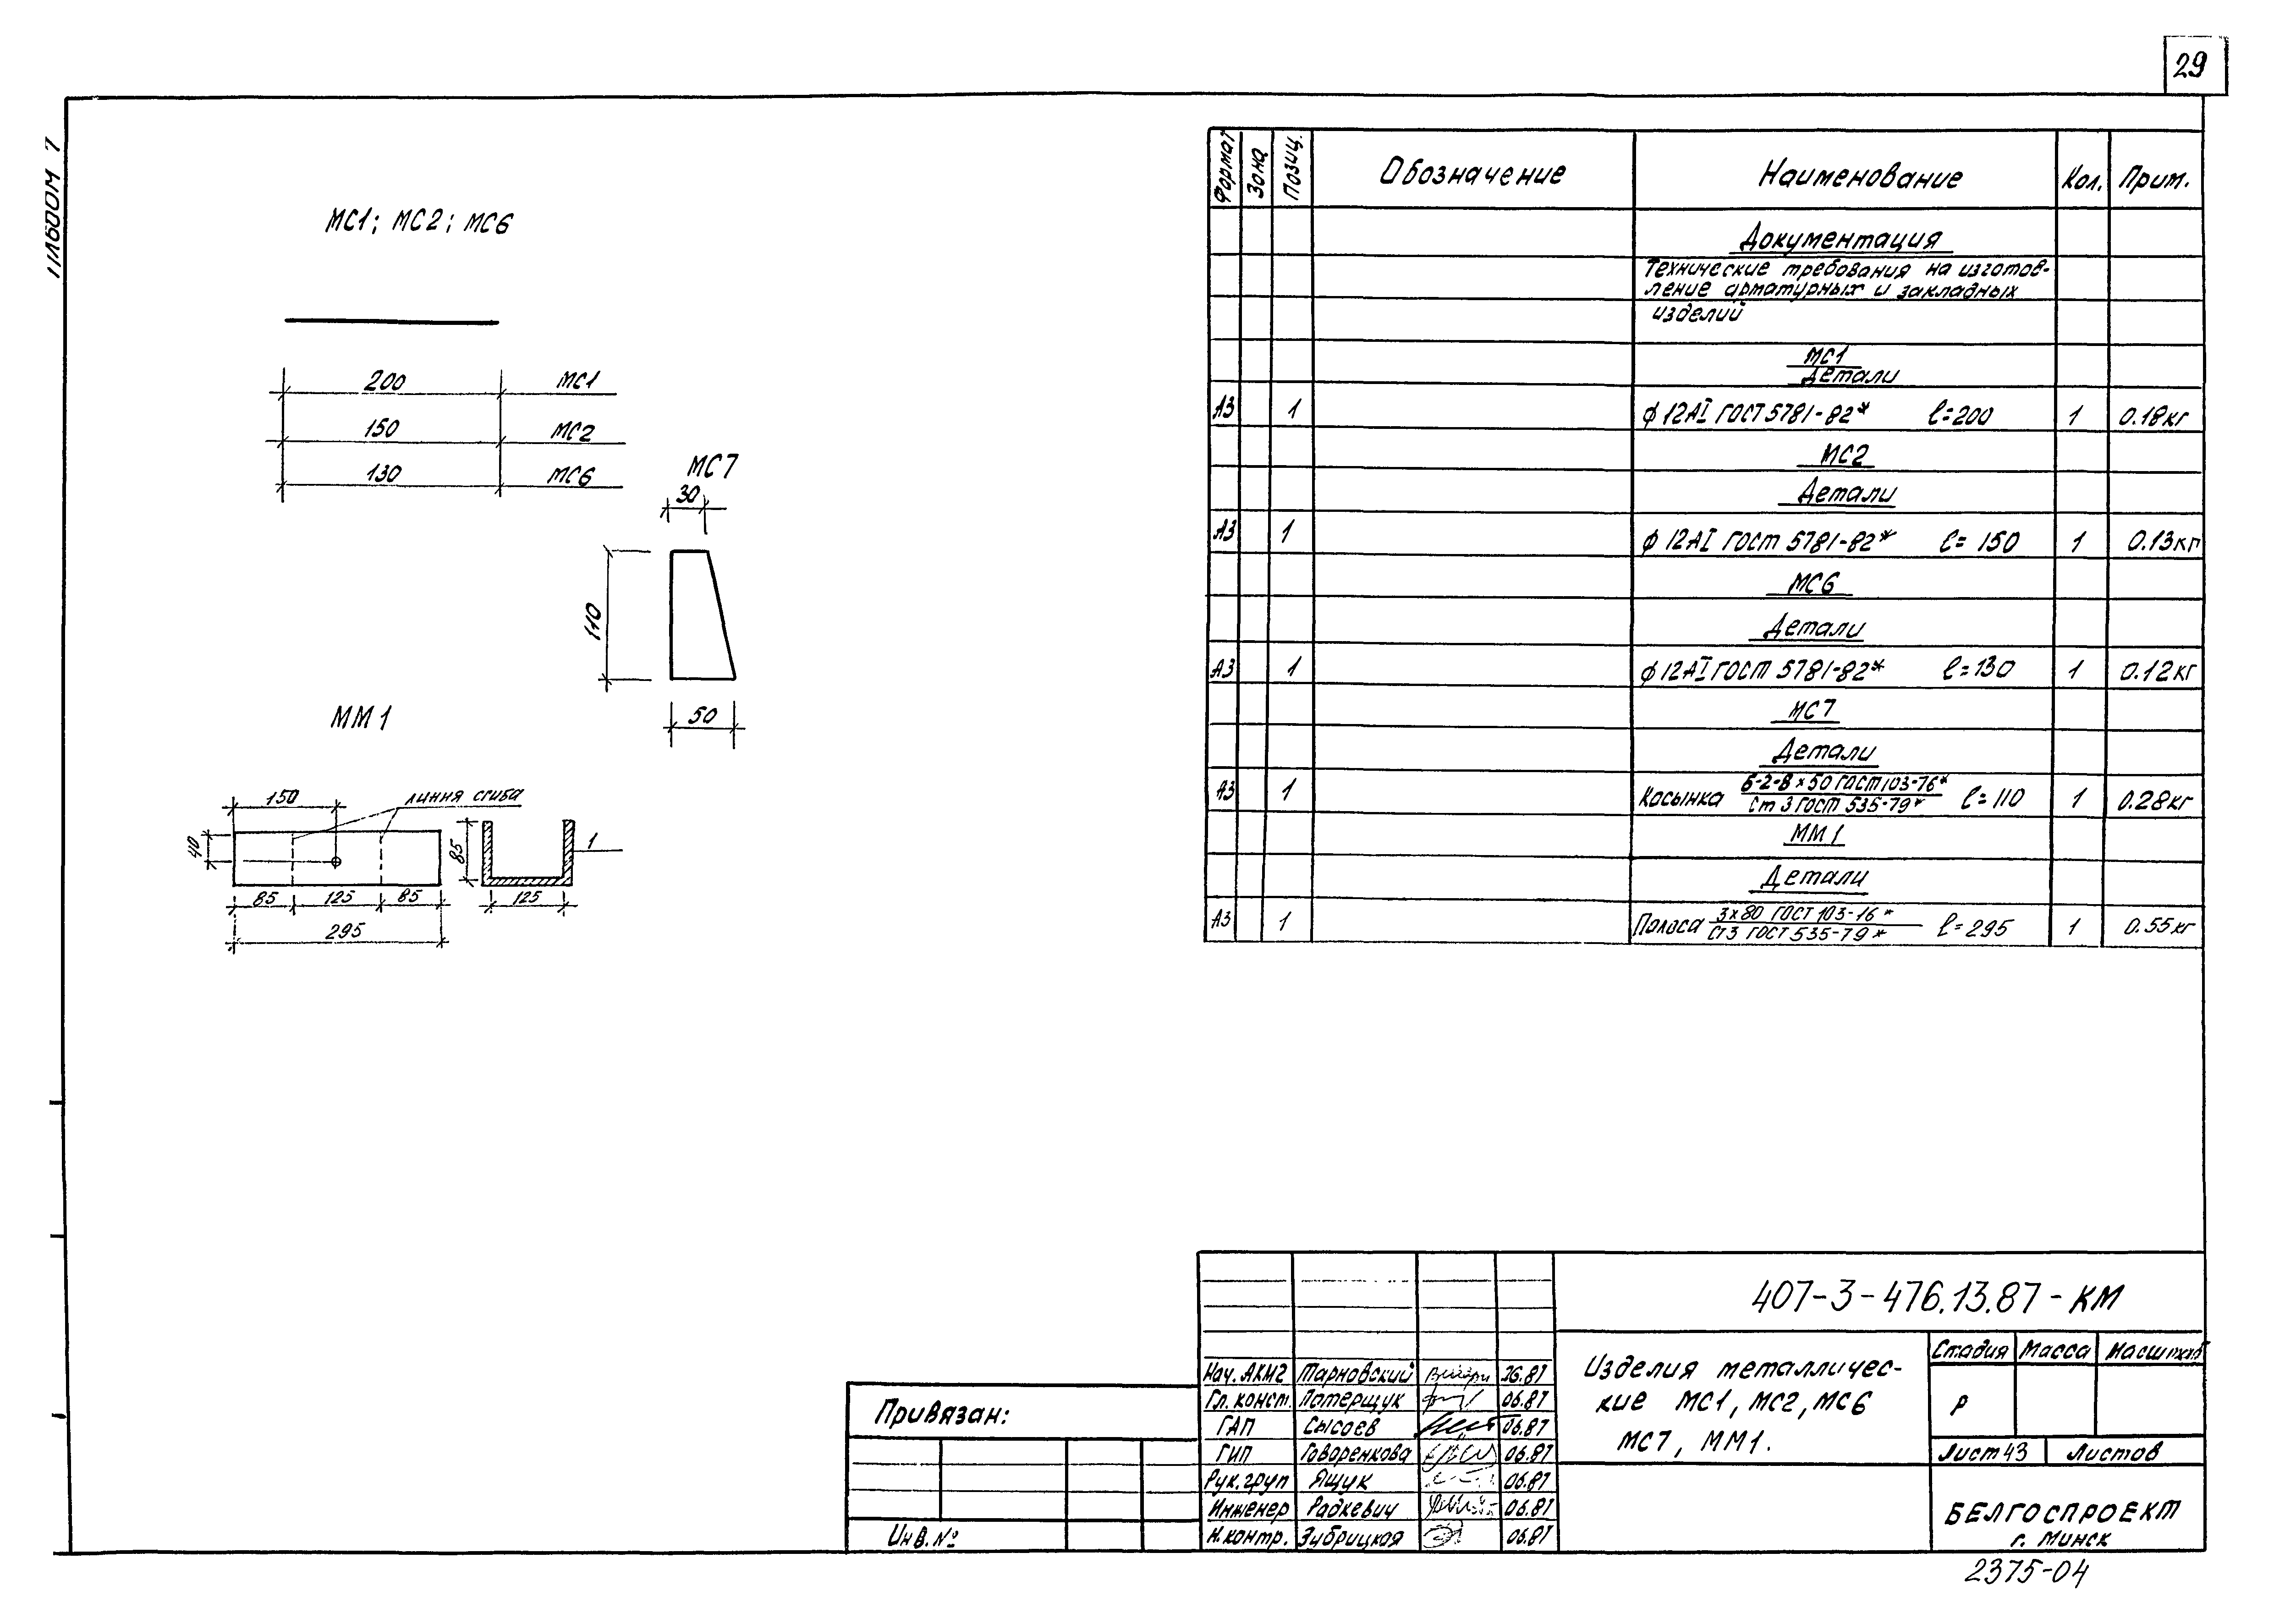 29
Альбом 7
МС1; МС2; МС6
200 МС1
150 МС2
130 МС6
МС7
30
110
50
ММ1
150 линия сгиба
40
85 125 85
295
85
125
1
Формат Зона Позиц. Обозначение Наименование Кол. Прим.
Документация
Технические требования на изготов-
ление арматурных и закладных
изделий
МС1
Детали
А3 1 ф12АI ГОСТ 5781-82* ℓ=200 1 0.18кг
МС2
Детали
А3 1 ф12АI ГОСТ 5781-82* ℓ=150 1 0.13кг
МС6
Детали
А3 1 ф12АI ГОСТ 5781-82* ℓ=130 1 0.12кг
МС7
Детали
А3 1 Косынка Б-2-8×50 ГОСТ 103-76* ℓ=110 1 0.28кг
Ст 3 ГОСТ 535-79*
ММ1
Детали
А3 1 Полоса 3×80 ГОСТ 103-76* ℓ=295 1 0.55кг
Ст3 ГОСТ 535-79*
407-3-476.13.87-КМ
Изделия металличес-
кие МС1, МС2, МС6
МС7, ММ1.
Стадия Масса Масштаб
Р
Лист 43 Листов
БЕЛГОСПРОЕКТ
г. Минск
Нач. АКМ2 Тарновский 06.87
Гл. конст. Потерщук 06.87
ГАП Сысоев 06.87
ГИП Говоренкова 06.87
Рук. груп Ящук 06.87
Инженер Радкевич 06.87
Н. контр. Зубрицкая 06.87
Привязан:
Инв. №
2375-04